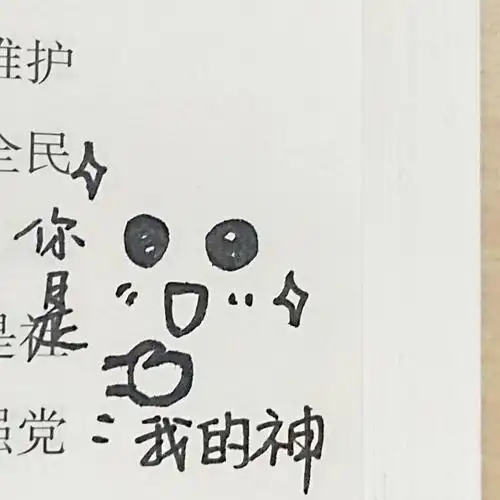 维护
全民
你
是
是社
强党
我的神